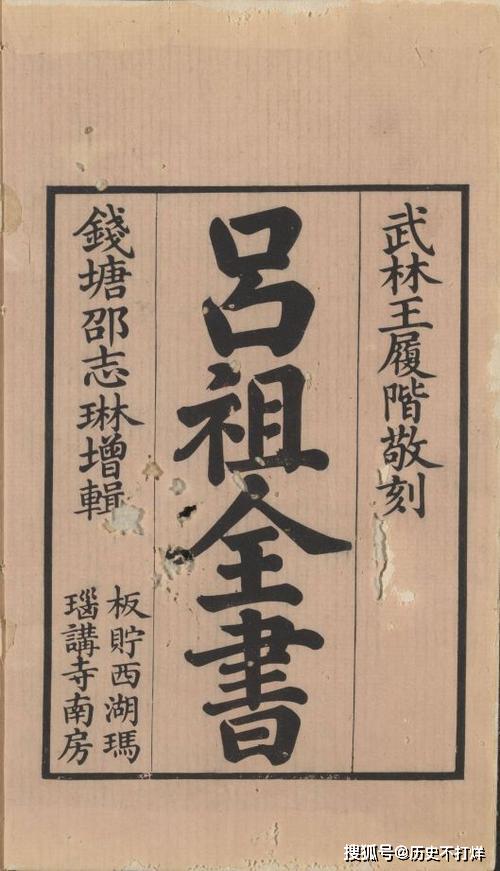 武林王履階敬刻
呂祖全書
錢塘邵志琳增輯
板貯西湖瑪
瑙講寺南房
搜狐号@历史不打烊